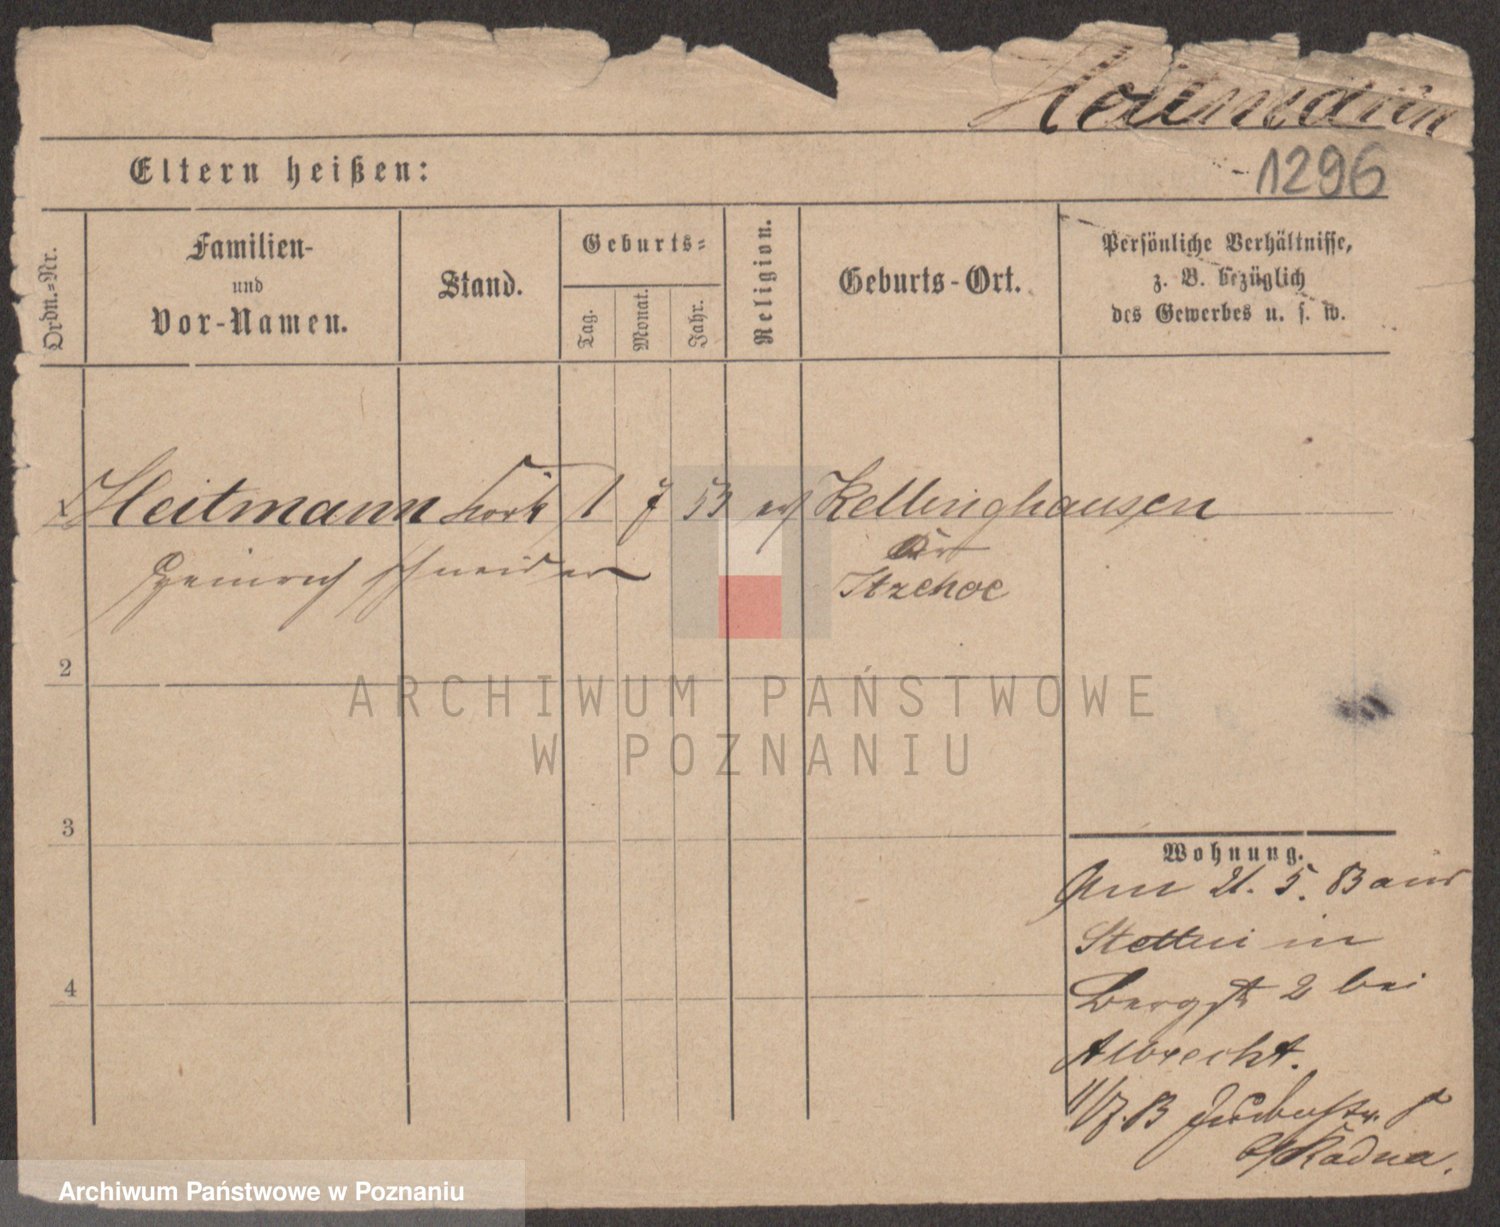 Heitmann
1296
Eltern heißen:
Ordn.-Nr.
Familien-
und
Vor-Namen.
Stand.
Geburts-
Tag.
Monat.
Jahr.
Religion.
Geburts-Ort.
Persönliche Verhältnisse,
z. B. bezüglich
des Gewerbes u. s. w.
Heitmann Kork 1 7 53 ev Kellinghausen
Heinrich schneider
Kr
Itzehoe
2
3
4
Wohnung.
Am 21. 5. 83 aus
Stettin in
Bergstr 2 bei
Albrecht.
11/7. 83 8
b/ Kadna.
ARCHIWUM PAŃSTWOWE
W POZNANIU
Archiwum Państwowe w Poznaniu